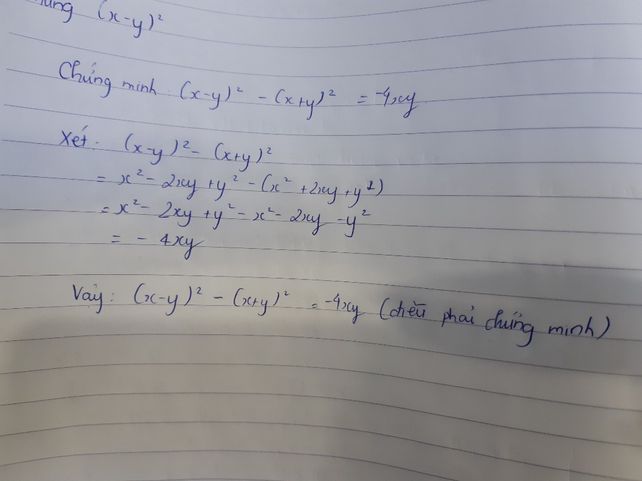 (x-y)²
Chứng minh (x-y)² - (x+y)² = -4xy
Xét: (x-y)² - (x+y)²
= x² - 2xy + y² - (x² + 2xy + y²)
= x² - 2xy + y² - x² - 2xy - y²
= - 4xy
Vậy: (x-y)² - (x+y)² = -4xy (điều phải chứng minh)